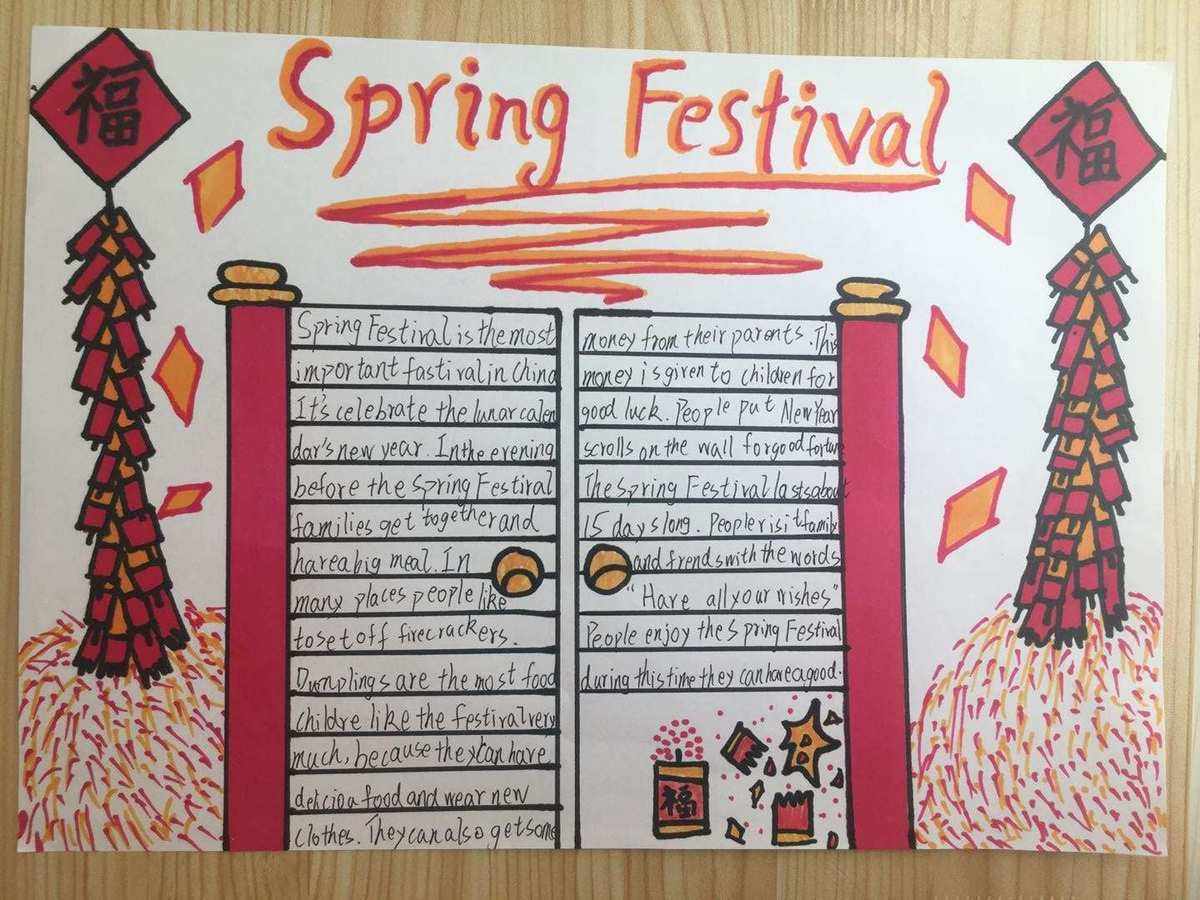 福
Spring Festival
福
Spring Festival is the most
important fastival in China
It's celebrate the lunar calen
dar's new year. In the evening
before the Spring Festival
families get together and
have a big meal. In
many places people like
to set off firecrackers.
Dumplings are the most food
childre like the festival very
much, because they can have
delicioa food and wear new
clothes. They can also get some
money from their parents. This
money is given to children for
good luck. People put New Year
scrolls on the wall for good fortune
The Spring Festival lasts about
15 days long. People visit family
and frends with the words
"Have all your wishes"
People enjoy the Spring Festival
during this time they can have a good.
福